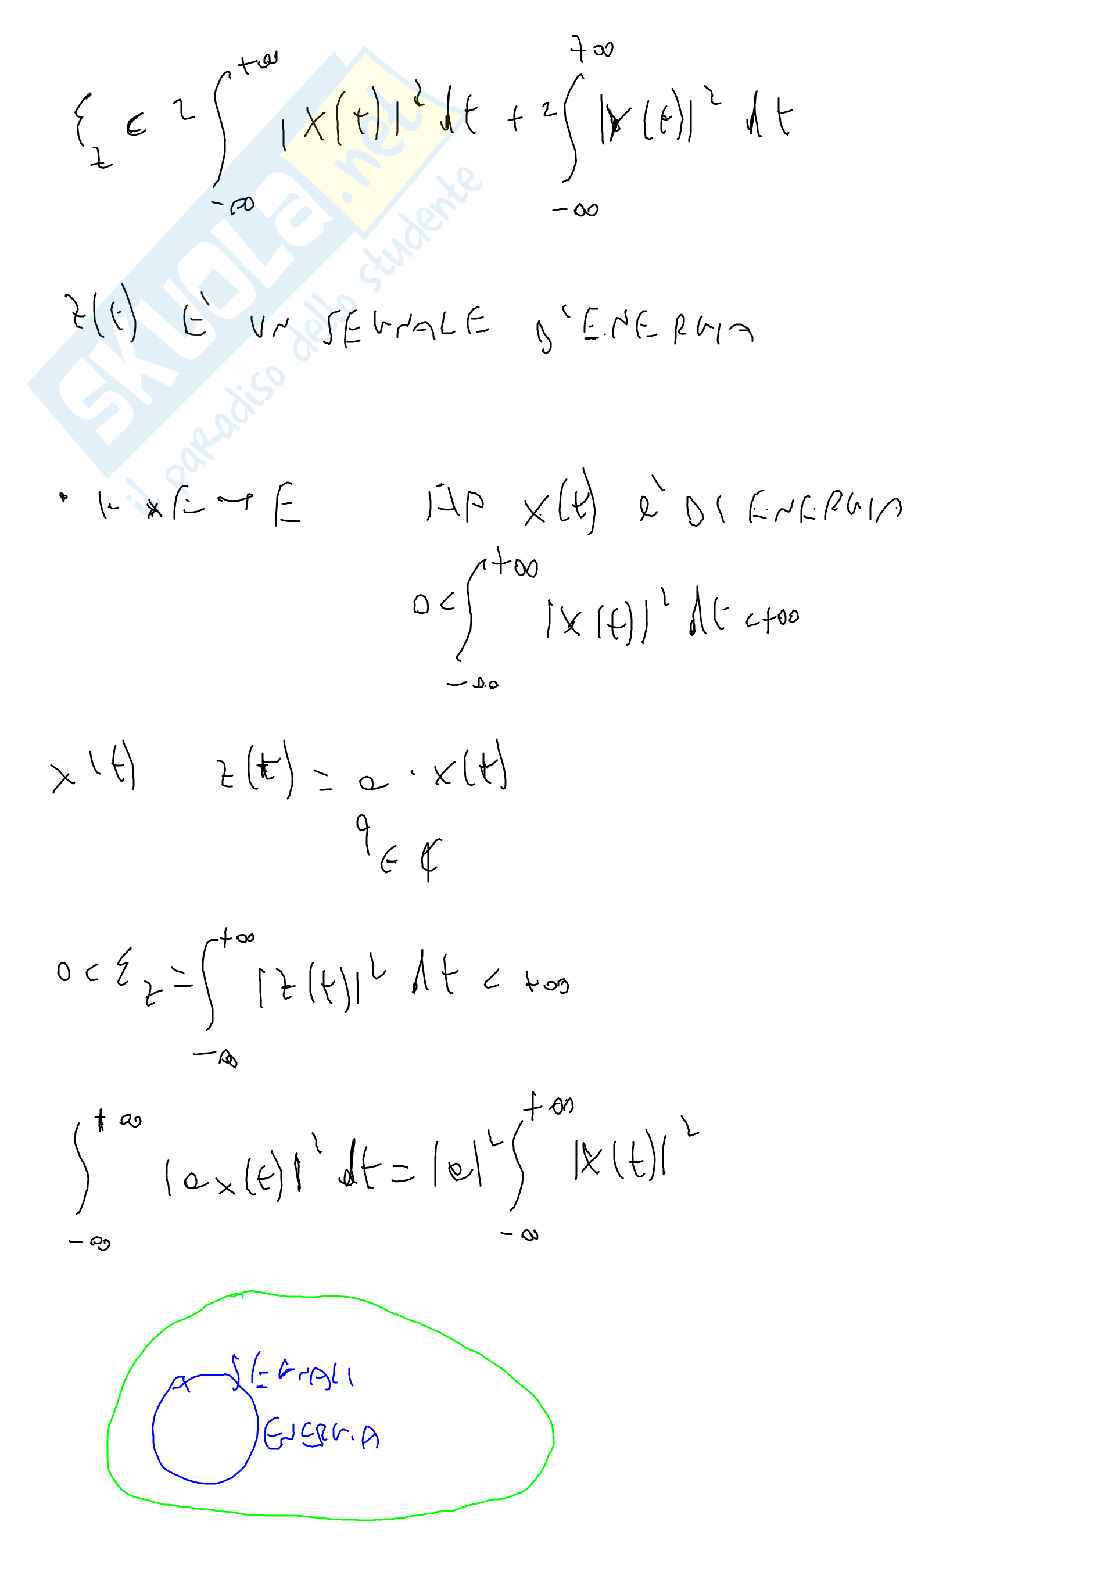 ℰ_z < 2 ∫_{-∞}^{+∞} |x(t)|² dt + 2 ∫_{-∞}^{+∞} |x(t)|² dt
z(t) E' UN SEGNALE D'ENERGIA
x E → E
HP x(t) è DI ENERGIA
0 < ∫_{-∞}^{+∞} |x(t)|² dt < +∞
x(t) z(t) = a · x(t)
∈ ℂ
0 < ℰ_z = ∫_{-∞}^{+∞} |z(t)|² dt < +∞
∫_{-∞}^{+∞} |a x(t)|² dt = |a|² ∫_{-∞}^{+∞} |x(t)|²
SEGNALI
ENERGIA
SKUOLA.net
il paradiso dello studente